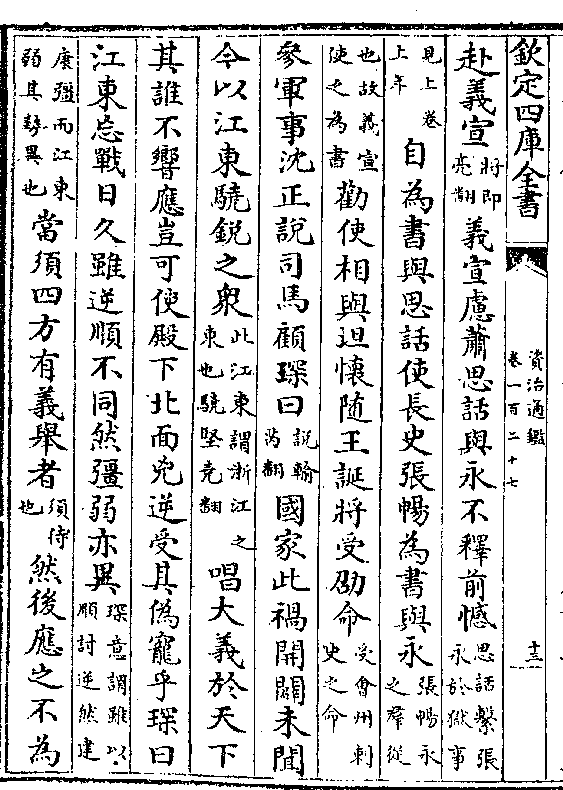 欽定四庫全書
資治通鑑
卷一百二十七
十三
赴義宣將即亮翻義宣慮蕭思話與永不釋前憾思話繫張永於獄事
見上卷上年自為書與思話使長史張暢為書與永張暢永之羣從
也故義宣使之為書勸使相與坦懷隨王誕將受劭命受會州刺史之命
參軍事沈正說司馬顧琛曰說輸芮翻國家此禍開闢未聞
今以江東驍鋭之衆此江東謂浙江之東也驍堅堯翻唱大義於天下
其誰不響應豈可使殿下北面兇逆受其偽寵乎琛曰
江東忘戰日久雖逆順不同然彊弱亦異琛意謂雖以順討逆然建
康彊而江東弱其勢異也當須四方有義舉者須待也然後應之不為